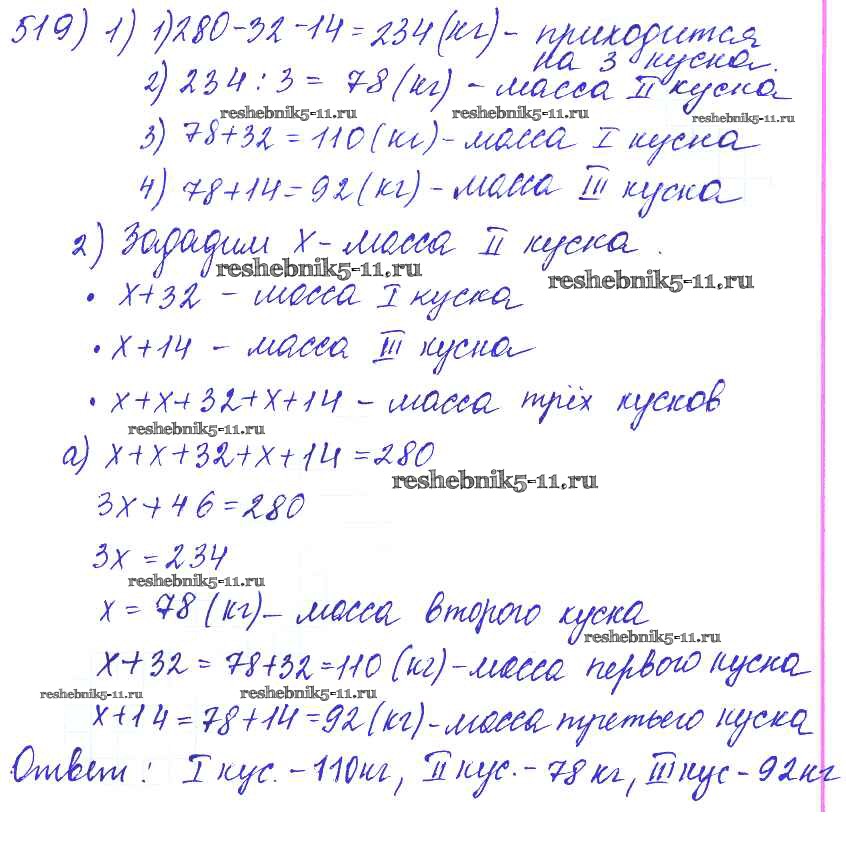 519) 1) 1) 280-32-14=234(кг)- приходится
на 3 куска.
2) 234:3= 78(кг)-масса II куска
reshebnik5-11.ru reshebnik5-11.ru reshebnik5-11.ru
3) 78+32=110(кг)-масса I куска
4) 78+14=92(кг)-масса III куска
2) Зададим x-масса II куска.
reshebnik5-11.ru reshebnik5-11.ru
• x+32 - масса I куска
• x+14 - масса III куска
• x+x+32+x+14 - масса трёх кусков
reshebnik5-11.ru
а) x+x+32+x+14=280
reshebnik5-11.ru
3x+46=280
3x=234
reshebnik5-11.ru
x=78(кг)- масса второго куска
reshebnik5-11.ru
x+32=78+32=110(кг)-масса первого куска
reshebnik5-11.ru reshebnik5-11.ru
x+14=78+14=92(кг)-масса третьего куска
Ответ: I кус.-110кг, II кус.-78кг, III кус-92кг